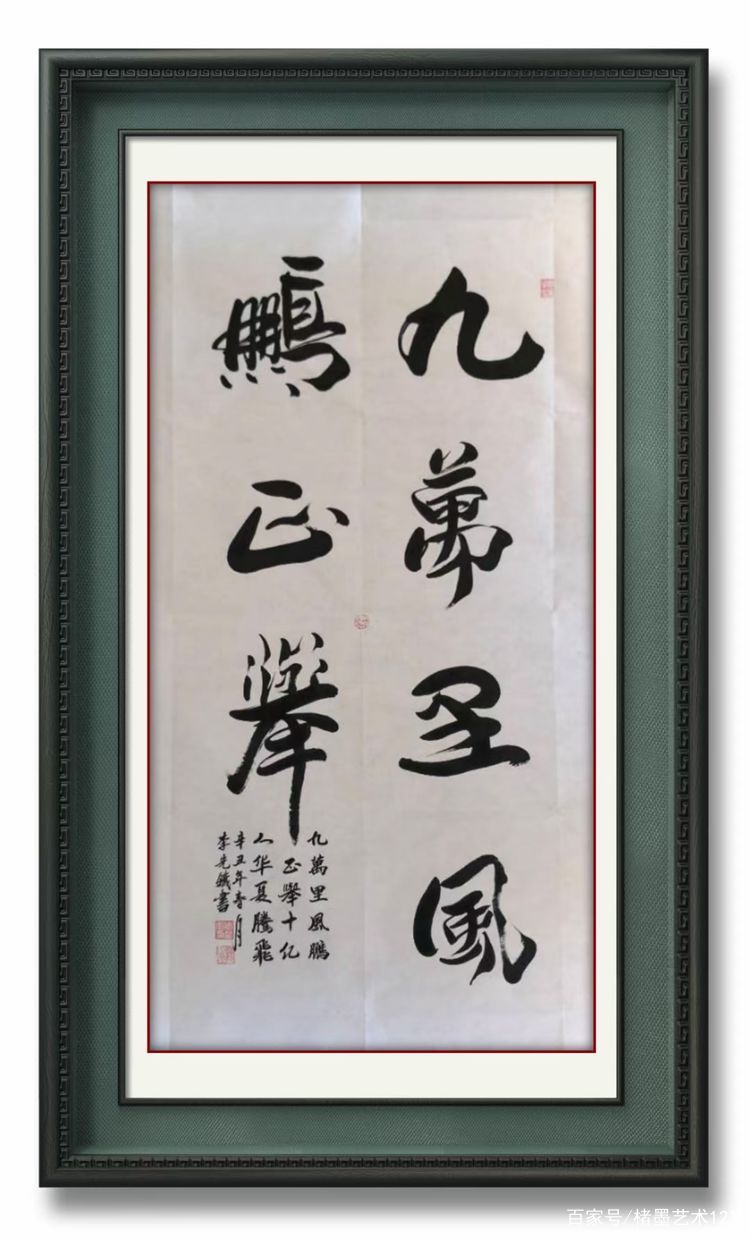 九萬里風
鵬正舉
九萬里風鵬
正舉十亿
人华夏騰飛
辛丑年春月
李先鐵書
百家号/楮墨艺术12